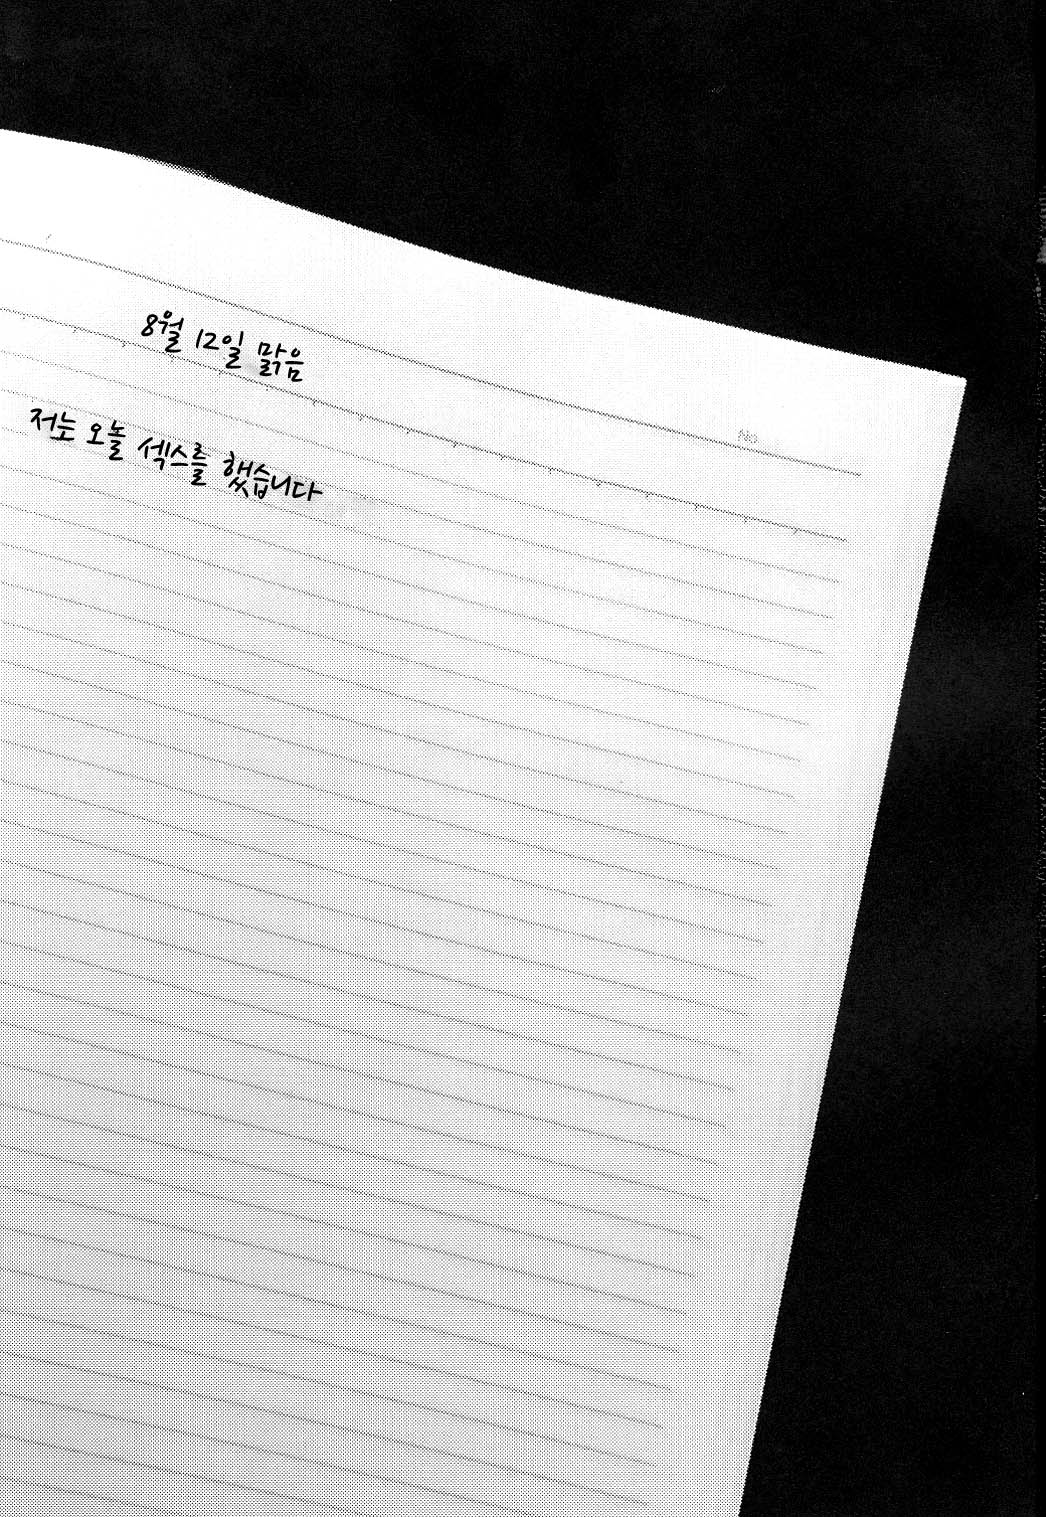 8월 12일 맑음
No
저는 오늘 섹스를 했습니다